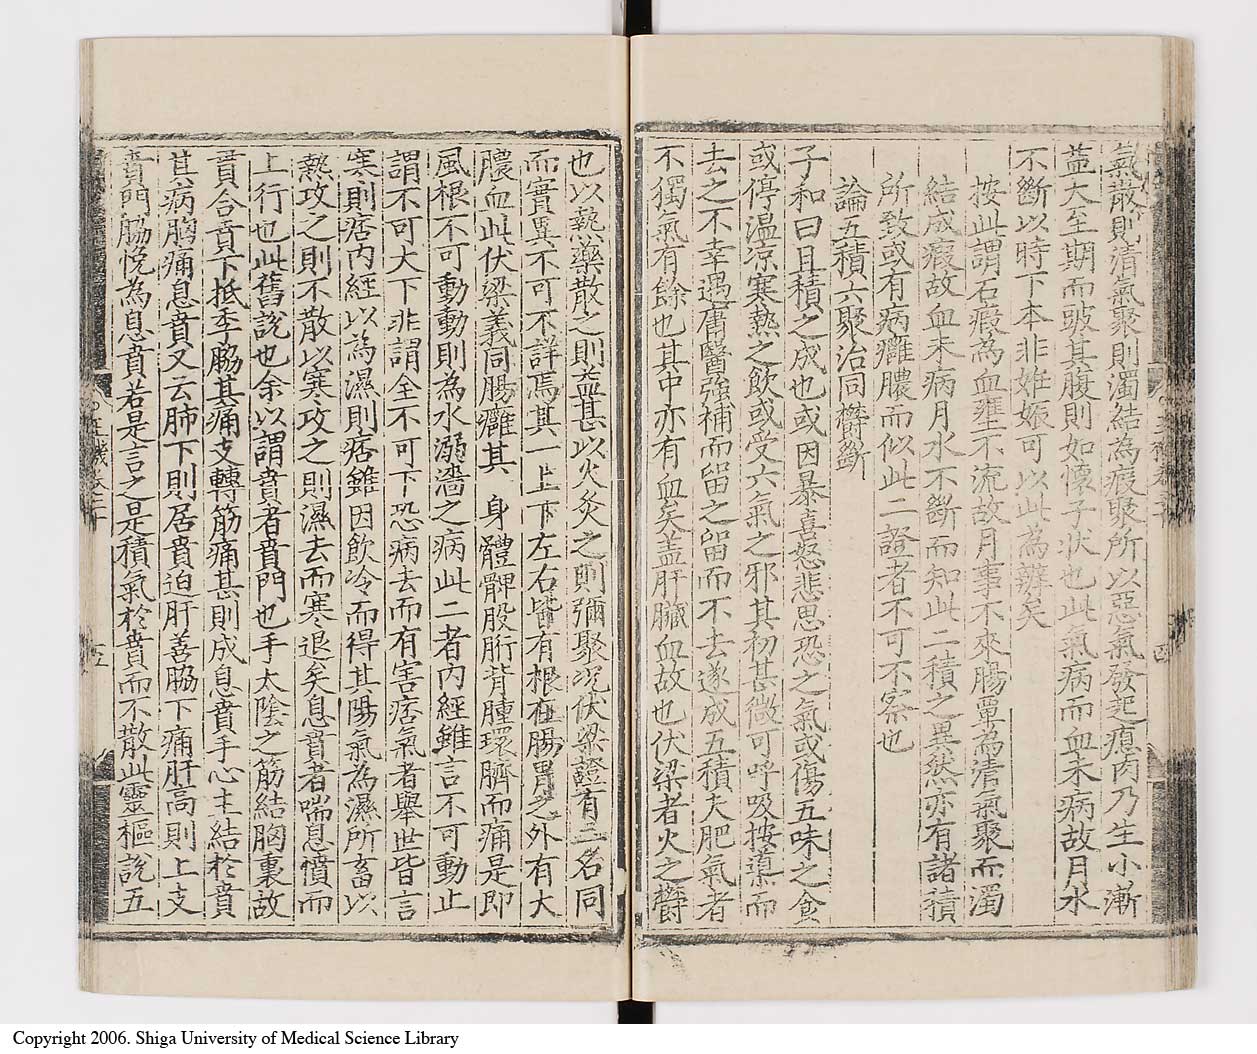 氣散則清氣聚則濁結為瘕聚所以惡氣發起瘜肉乃生小漸
益大至期而皷其腹則如懷子状也此氣病而血未病故月水
不斷以時下本非姙娠可以此為辨矣
按此謂石瘕為血壅不流故月事不來腸覃為清氣聚而濁
結成瘕故血未病月水不斷而知此二積之異然亦有諸積
所致或有病癰膿而似此二證者不可不察也
論五積六聚治同欝斷
子和曰且積之成也或因暴喜怒悲思恐之氣或傷五味之食
或停温凉寒熱之飲或受六氣之邪其初甚微可呼吸按導而
去之不幸遇庸醫強補而留之留而不去遂成五積夫肥氣者
不獨氣有餘也其中亦有血矣盖肝臟血故也伏梁者火之欝
也以熱藥散之則益甚以火灸之則彌聚况伏梁證有二名同
而實異不可不詳焉其一上下左右皆有根在腸胃之外有大
膿血此伏梁義同腸癰其 身體髀股胻背腫環臍而痛是即
風根不可動動則為水溺濇之病此二者内經雖言不可動止
謂不可大下非謂全不可下恐病去而有害痞氣者舉世皆言
寒則痞内經以為濕則痞雖因飲冷而得其陽氣為濕所畜以
熱攻之則不散以寒攻之則濕去而寒退矣息賁者喘息憤而
上行也此舊說也余以謂賁者賁門也手太陰之筋結胸裏故
賁合賁下抵季脇其痛支轉筋痛甚則成息賁手心主結於賁
其病胸痛息賁又云肺下則居賁迫肝善脇下痛肝高則上支
賁門脇悗為息賁若是言之是積氣於賁而不散此靈樞說五